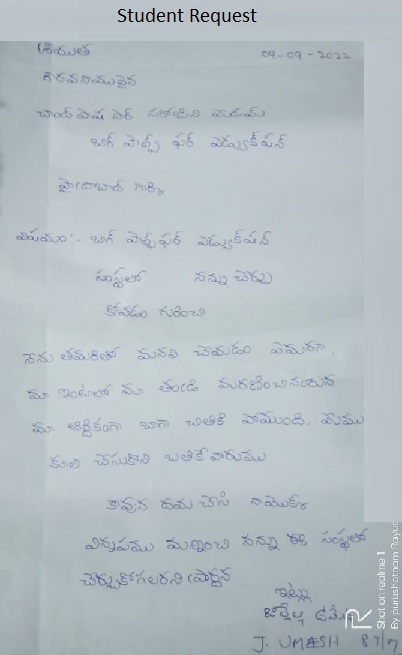 Student Request
శ్రీయుత
09-09-2022
గౌరవనీయులైన
చాంద్ పాష సర్ సరోజిని మేడమ్
బిగ్ హెల్ప్ ఫర్ ఎడ్యుకేషన్
హైదరాబాద్ గార్కి
విషయం:- బిగ్ హెల్ప్ ఫర్ ఎడ్యుకేషన్
సంస్థలో నన్ను చేర్చు
కోవడం గురించి
నేను తమరితో మనవి చేయడం ఏమనగా.
మా ఇంటిలో మా తండ్రి మరణించినందున
మా ఆర్థికంగా బాగా చితికి పోయింది. మేము
కూలి చేసుకొని బతికేవారుము
కావున దయ చేసి నాయొక్క
విన్నపము మన్నించి నన్ను ఈ సంస్థలో
చేర్చుకోగలరని ప్రార్థన
ఇట్లు
J. UMESH
Shot on realme 1
By purushotham Rayudu